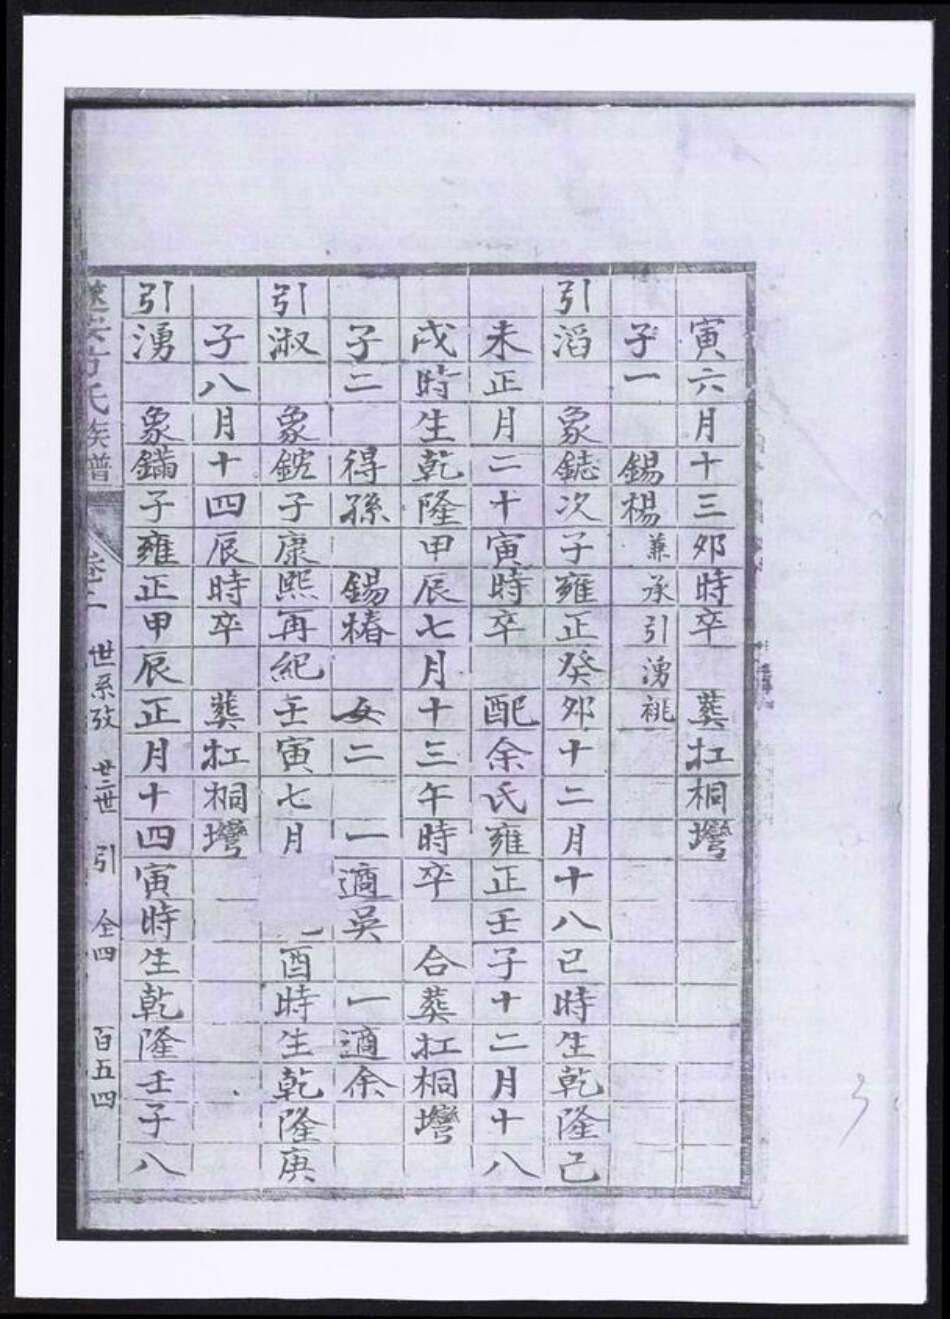 寅六月十三卯時卒 葬扛桐灣
子一 錫楊 兼承引湧祧
引滔 象鋕次子雍正癸卯十二月十八巳時生乾隆己
未正月二十寅時卒 配余氏雍正壬子十二月十八
戌時生乾隆甲辰七月十三午時卒 合葬扛桐灣
子二 得孫 錫椿 女二 一適吳 一適余
引淑 象鋐子康熙再紀壬寅七月 一酉時生乾隆庚
子八月十四辰時卒 葬扛桐灣
引湧 象鏋子雍正甲辰正月十四寅時生乾隆壬子八
方氏族譜 卷二 世系攷 廿二世 引 仝四 百五四